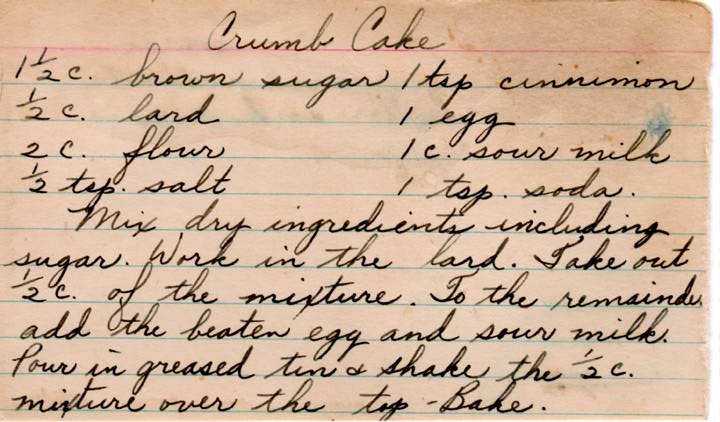 Crumb Cake
1 1/2 c. brown sugar 1 tsp cinnimon
1/2 c. lard 1 egg
2 c. flour 1 c. sour milk
1/2 tsp. salt 1 tsp. soda.
Mix dry ingredients including
sugar. Work in the lard. Take out
1/2 c. of the mixture. To the remainder
add the beaten egg and sour milk.
Pour in greased tin & shake the 1/2 c.
mixture over the top - Bake.